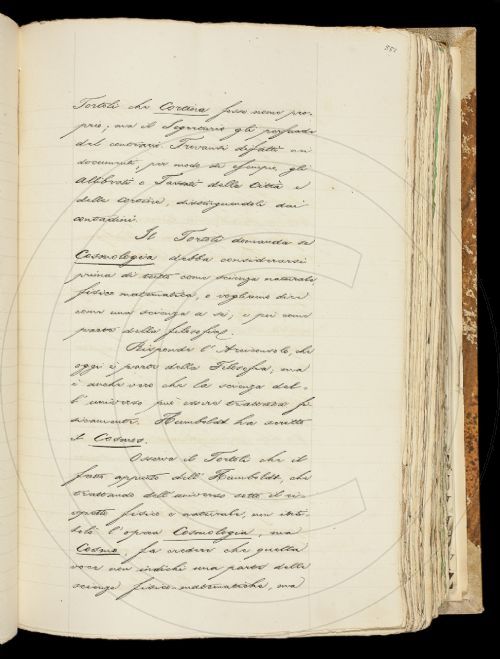 551
Tortoli che Cortina fosse nome pro-
prio; ma il Segretario gli persuade
del contrario. Trovansi difatti nei
documenti, per modo di esempio, gli
Allibrati e Tassati della Città e
della Cortina, distinguendoli dai
contadini.
Il Tortoli domanda se
Cosmologia debba considerarsi
prima di tutto come scienza naturale
fisico matematica, o vogliamo dire
come una scienza a sè, e poi come
parte della filosofia.
Risponde l'Arciconsolo, che
oggi è parte della Filosofia; ma
è anche vero che la scienza del-
l'universo può essere trattata fi-
sicamente. Humboldt ha scritto
il Cosmos.
Osserva il Tortoli che il
fatto appunto dell'Humboldt, che
trattando dell'universo sotto il ri-
spetto fisico e naturale, non inti-
tolò l'opera Cosmologia, ma
Cosmo, fa credere che quella
voce non indichi una parte delle
scienze fisico-matematiche, ma